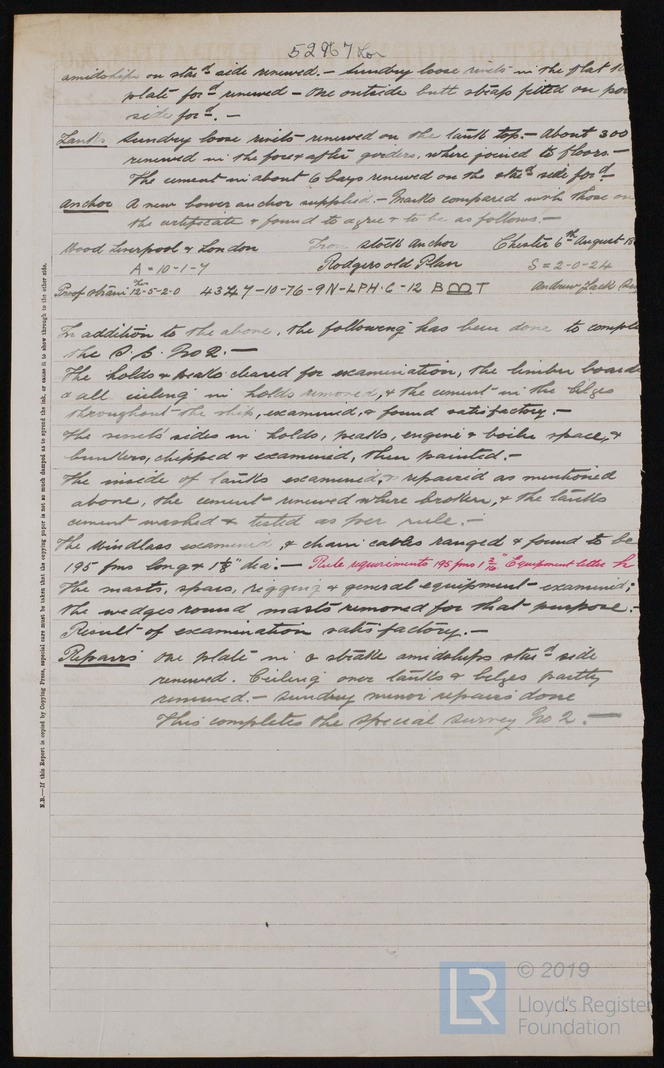 52967 Lon
amidships on starᵈ side renewed. – Sundry loose rivets in the flat
plate forᵈ renewed – One outside butt strap fitted on
side forᵈ. –
Tanks Sundry loose rivets renewed on the tank top. – About 300
renewed in the fore & after girders, where joined to floors. –
The cement in about 6 bays renewed on the starᵈ side forᵈ –
Anchor A new bower anchor supplied. – Marks compared with those on
the certificate & found to agree & to be as follows. –
Wood Liverpool & London Iron stock anchor Chester 6ᵗʰ August
A = 10-1-7 Rodgers old Plan S = 2-0-24
Proof strain 12-5-2-0 4347-10-76-9N-LPH.C-12 B T Andrew Jack
In addition to the above, the following has been done to
the S. S. No 2. –
The holds & peaks cleared for examination, the limber boards
& all ceiling in holds removed, & the cement in the bilges
throughout the ship, examined, & found satisfactory. –
The vessels' sides in holds, peaks, engine & boiler space, &
bunkers, chipped & examined, then painted. –
The inside of tanks examined, & repaired as mentioned
above, the cement renewed where broken, & the tanks
cement washed & tested as per rule. –
The Windlass examined, & chain cables ranged & found to be
195 fms long & 1 ⅛" dia. – Rule requirements 195 fms 1 2/16" Equipment letter h
The masts, spars, rigging & general equipment examined;
the wedges round masts removed for that purpose. –
Result of examination satisfactory. –
Repairs One plate in strake amidships starᵈ side
renewed. Ceiling over tanks & bilges partly
renewed. – Sundry minor repairs done
This completes the special survey No 2. –
N.B.—If this Report is copied by Copying Press, especial care must be taken that the copying paper is not so much damped as to spread the ink, or cause it to show through to the other side.
LR
© 2019
Lloyd's Register
Foundation